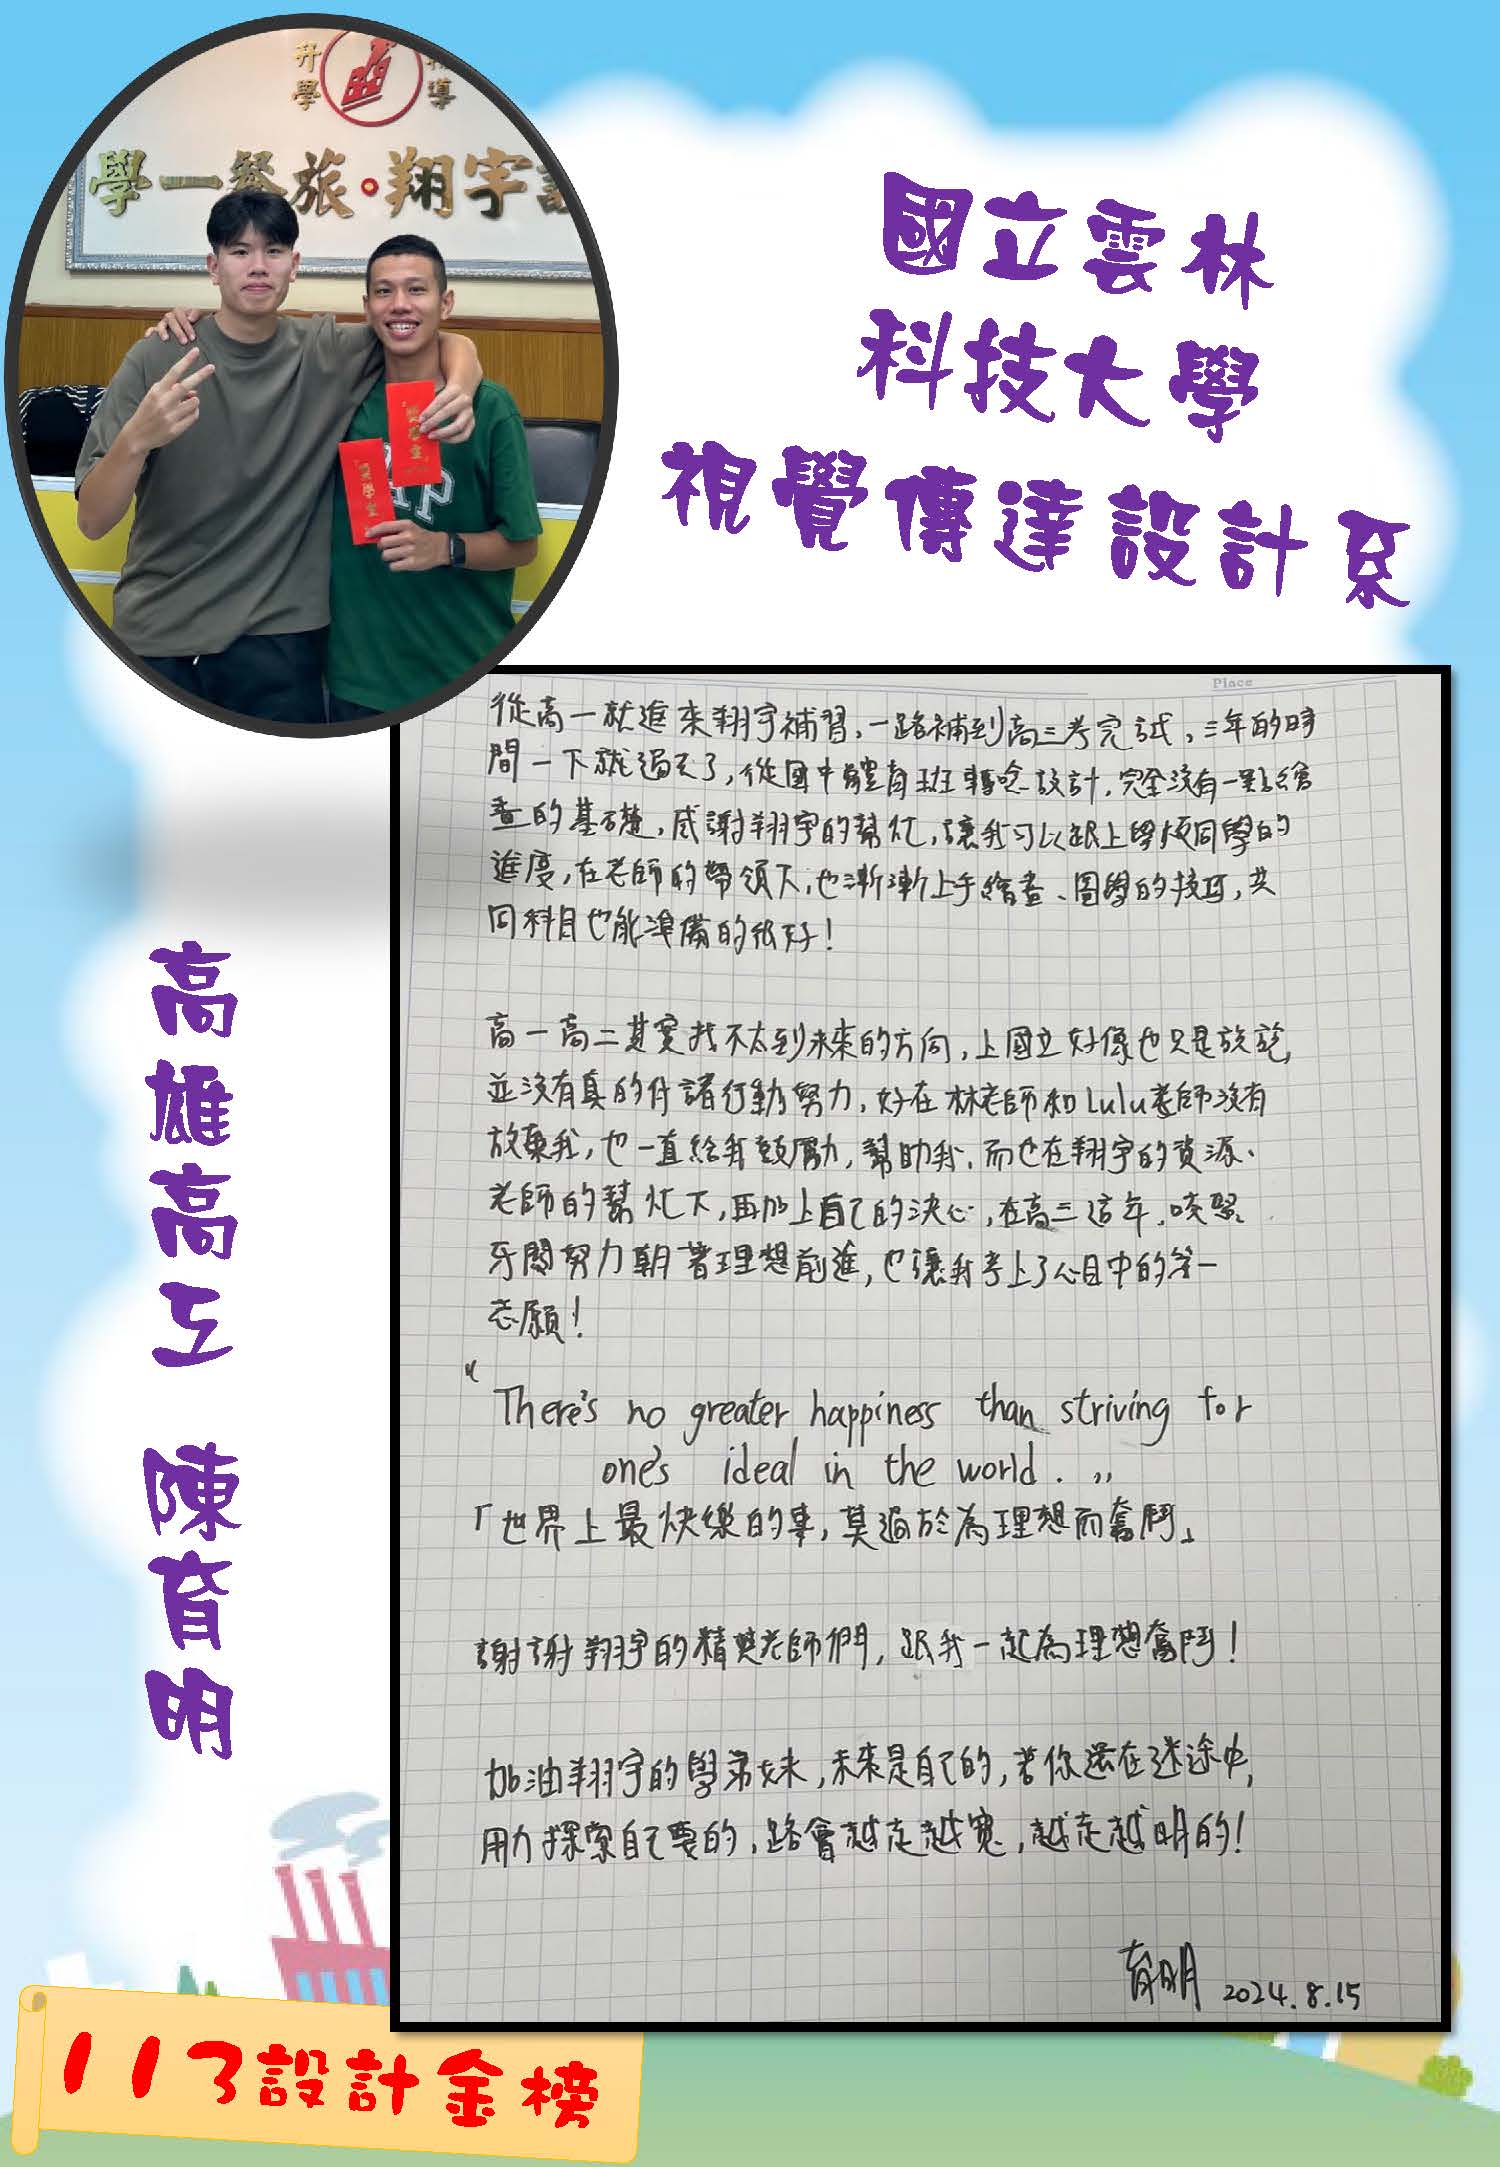 升學
輔導
學一餐旅·翔宇設
獎學金
獎學金
國立雲林
科技大學
視覺傳達設計系
高雄高工 陳育明
Place
從高一就進來翔宇補習,一路補到高三考完試,三年的時
間一下就過去了,從國中體育班轉唸設計,完全沒有一點繪
畫的基礎,感謝翔宇的幫忙,讓我可以跟上學校同學的
進度,在老師的帶領下,也漸漸上手繪畫、圖學的技巧,共
同科目也能準備的很好!
高一高二其實找不太到未來的方向,上國立好像也只是說說,
並沒有真的付諸行動努力,好在林老師和Lulu老師沒有
放棄我,也一直給我鼓勵,幫助我,而也在翔宇的資源、
老師的幫忙下,再加上自己的決心,在高三這年,咬緊
牙關努力朝著理想前進,也讓我考上了心目中的第一
志願!
"There's no greater happiness than striving for
one's ideal in the world."
「世界上最快樂的事,莫過於為理想而奮鬥」
謝謝翔宇的精英老師們,跟我一起為理想奮鬥!
加油翔宇的學弟妹,未來是自己的,若你還在迷途中,
用力探索自己要的,路會越走越寬,越走越明的!
育明 2024.8.15
113設計金榜